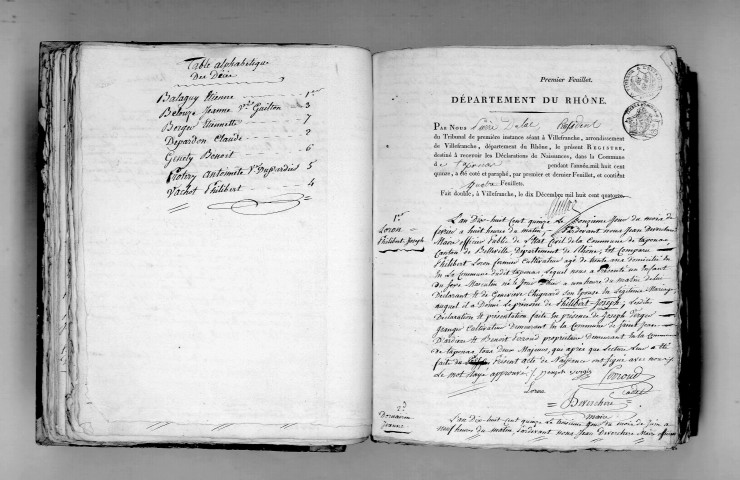 Table alphabétique
Des Décès
Balaguy Etienne 1er
Belouze Jeanne Ve Gaitton 3
Berger Etiennette 7
Depardon Claude 2
Genety Benoit 6
Antoinette Ve Dupardieu 5
Vachot Philibert 4
Premier Feuillet.
DÉPARTEMENT DU RHÔNE.
PAR NOUS Président
du Tribunal de première instance séant à Villefranche, arrondissement
de Villefranche, département du Rhône, le présent REGISTRE,
destiné à recevoir les Déclarations de Naissances, dans la Commune
de Taponas pendant l'année mil huit cent
quinze, a été coté et paraphé, par premier et dernier Feuillet, et contient
quatre Feuillets.
Fait double, à Villefranche, le dix Décembre mil huit cent quatorze
1er
Loron
Philibert-Joseph
L'an Dix-huit Cent quinze Le Douzieme Jour du mois de
fevrier a huit heures du matin, Pardevant nous Jean Deverchere
Maire officier public de L'Etat Civil de la Commune de taponas
Canton de Belleville, Département du Rhône, Est Comparu
Philibert Loron fermier Cultivateur agé de trente ans domicilié En
En La Commune dudit taponas, Lequel nous a Presenté un Enfant
du Sexe Masculin né Le Jour d'hier a une heure du matin de lui
Déclarant & de Genevieve Chugnard Son Epouse En Légitime Mariage,
auquel il a Donné Le prénom de Philibert-Joseph; Lesdites
Déclaration & présentation faite En présence de Joseph Verger
Granger Cultivateur demeurant En la Commune de Saint Jean
D'ardiere & Benoit Perroud propriétaire Demeurant En la Commune
de taponas tous deux Majeurs, que après que Lecture Leur a Eté
faite du présent acte de Naissance ont Signé avec nous
Le mot Rayé approuvé. Joseph verger Perroud
Loron Cadet
Deverchere
maire
2d
Jeanne
L'an Dix-huit Cent quinze Le troisieme Jour du mois de Juin a
neuf heures du matin, Pardevant nous Jean Deverchere Maire officier